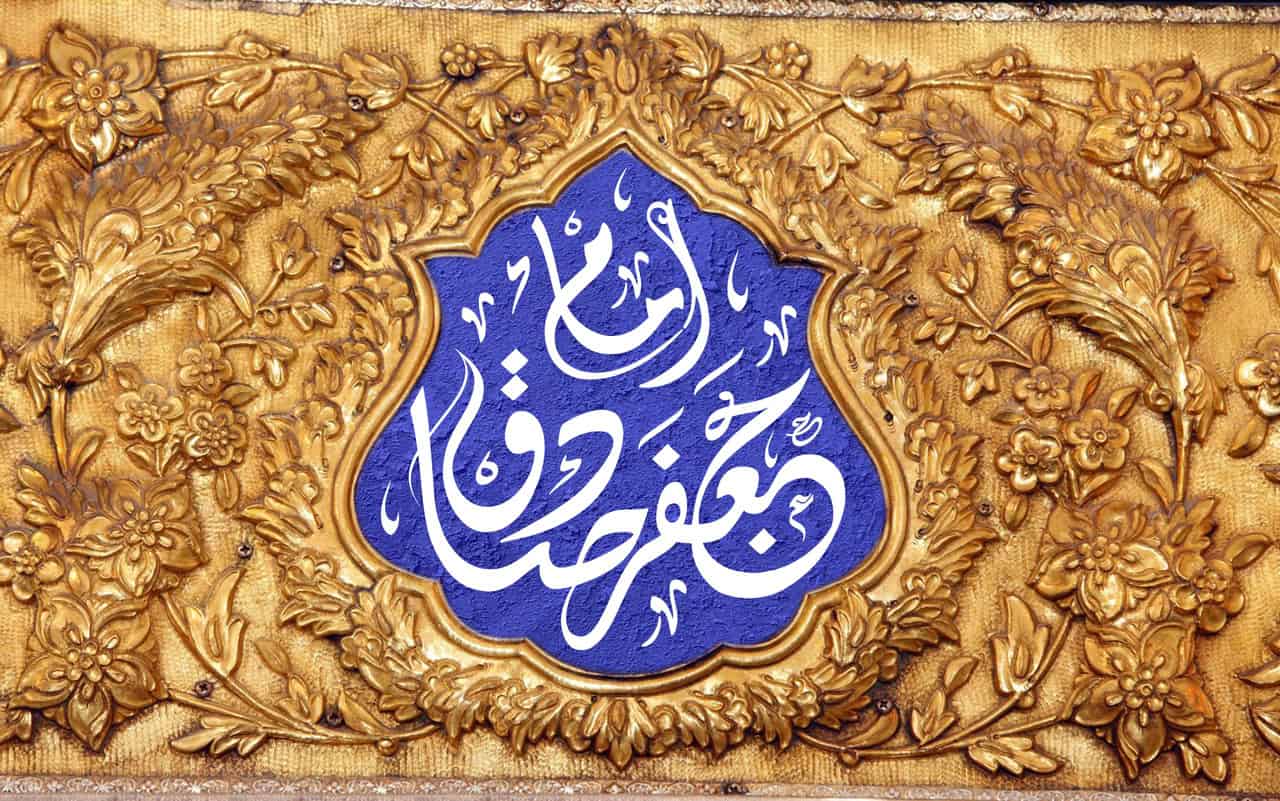 امام
جعفر صادق